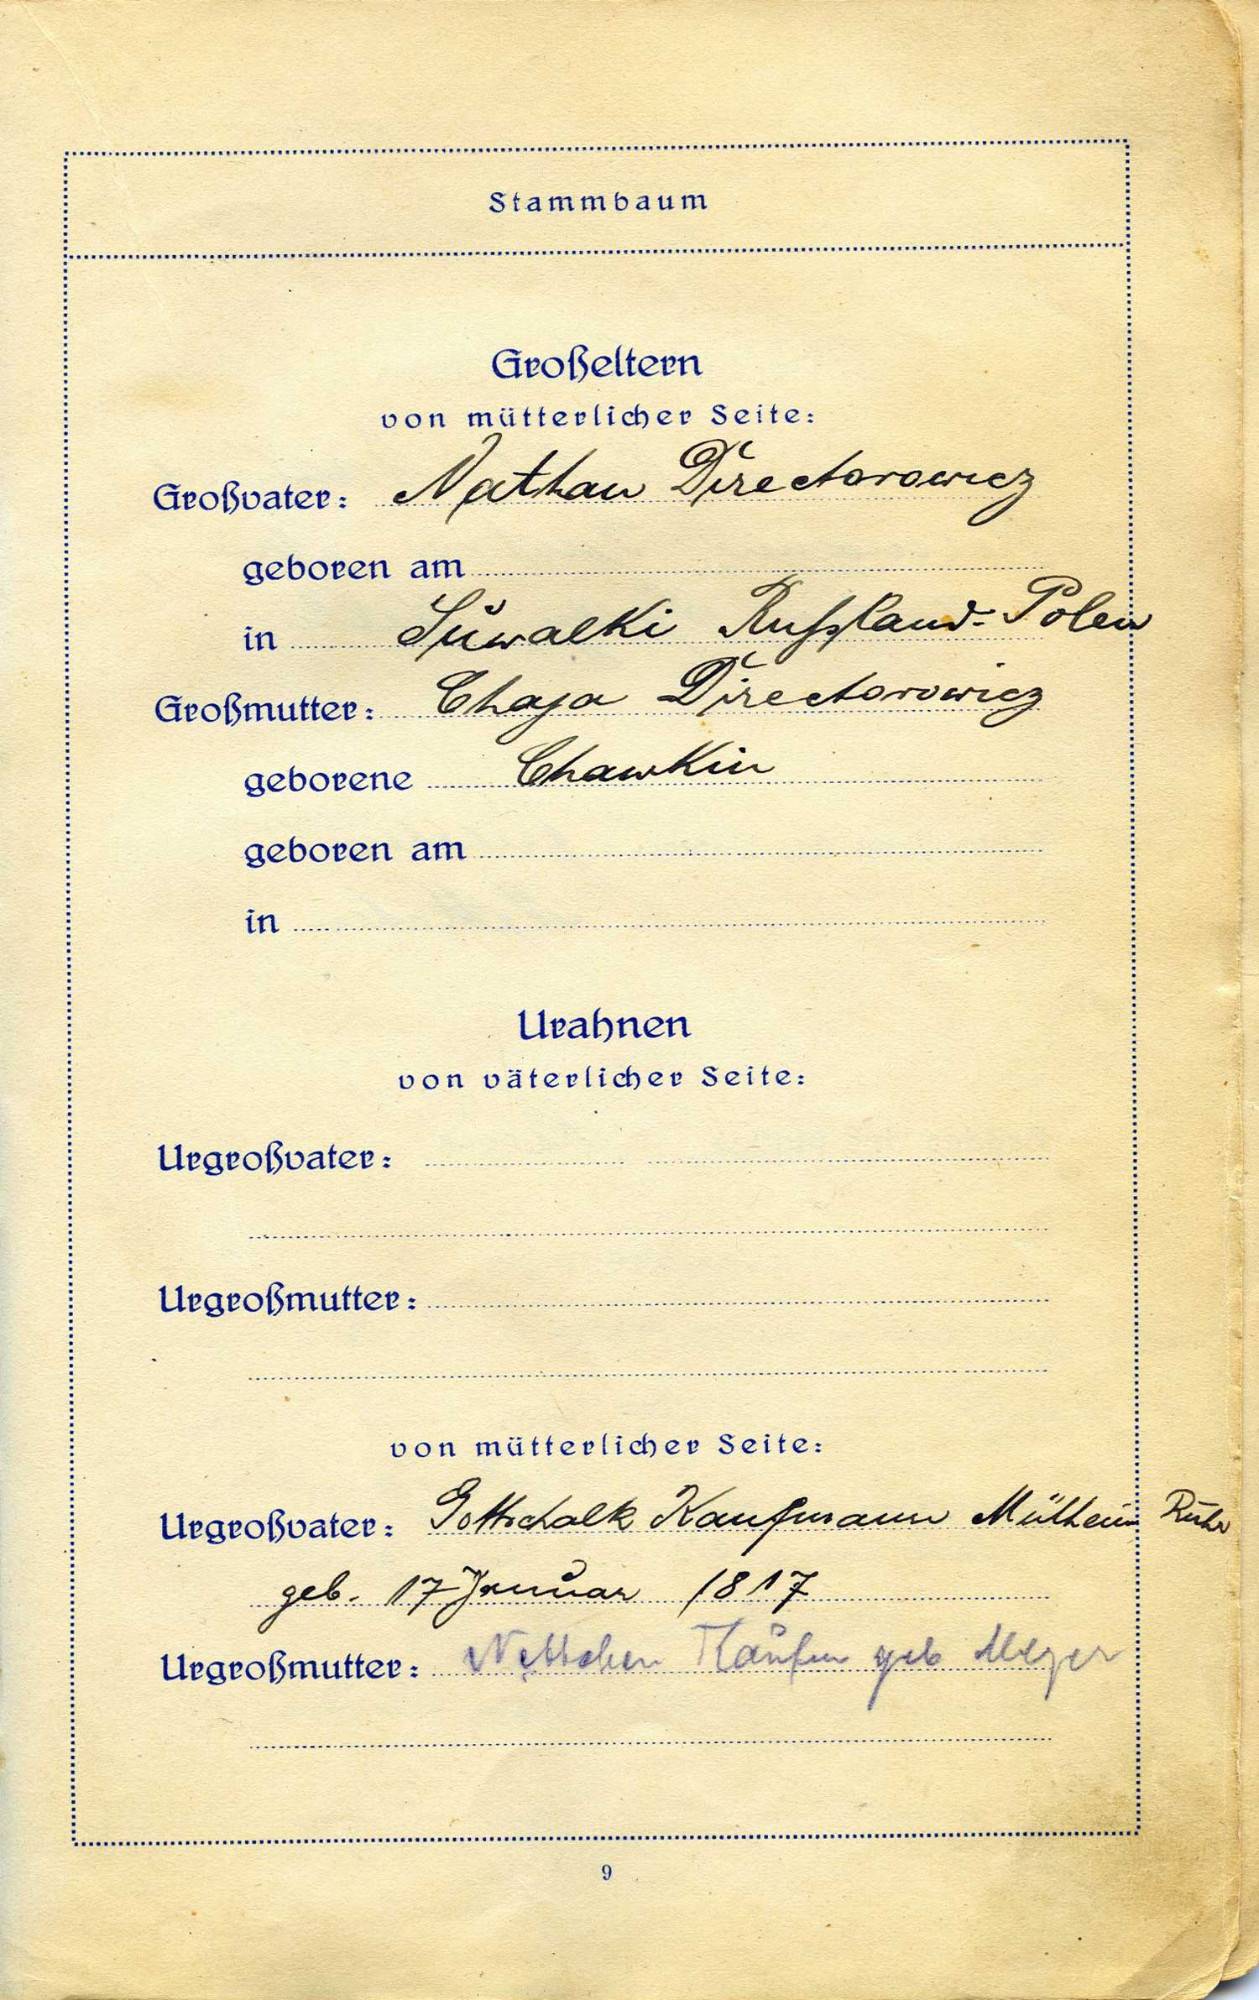 Stammbaum
Großeltern
von mütterlicher Seite:
Großvater: Nathan Directorowicz
geboren am
in Suwalki Russland-Polen
Großmutter: Chaja Directorowicz
geborene Chawkin
geboren am
in
Urahnen
von väterlicher Seite:
Urgroßvater:
Urgroßmutter:
von mütterlicher Seite:
Urgroßvater: Gottschalk Kaufmann Mülheim Ruhr
geb. 17 Januar 1817
Urgroßmutter: Nettchen geb Meyer
9